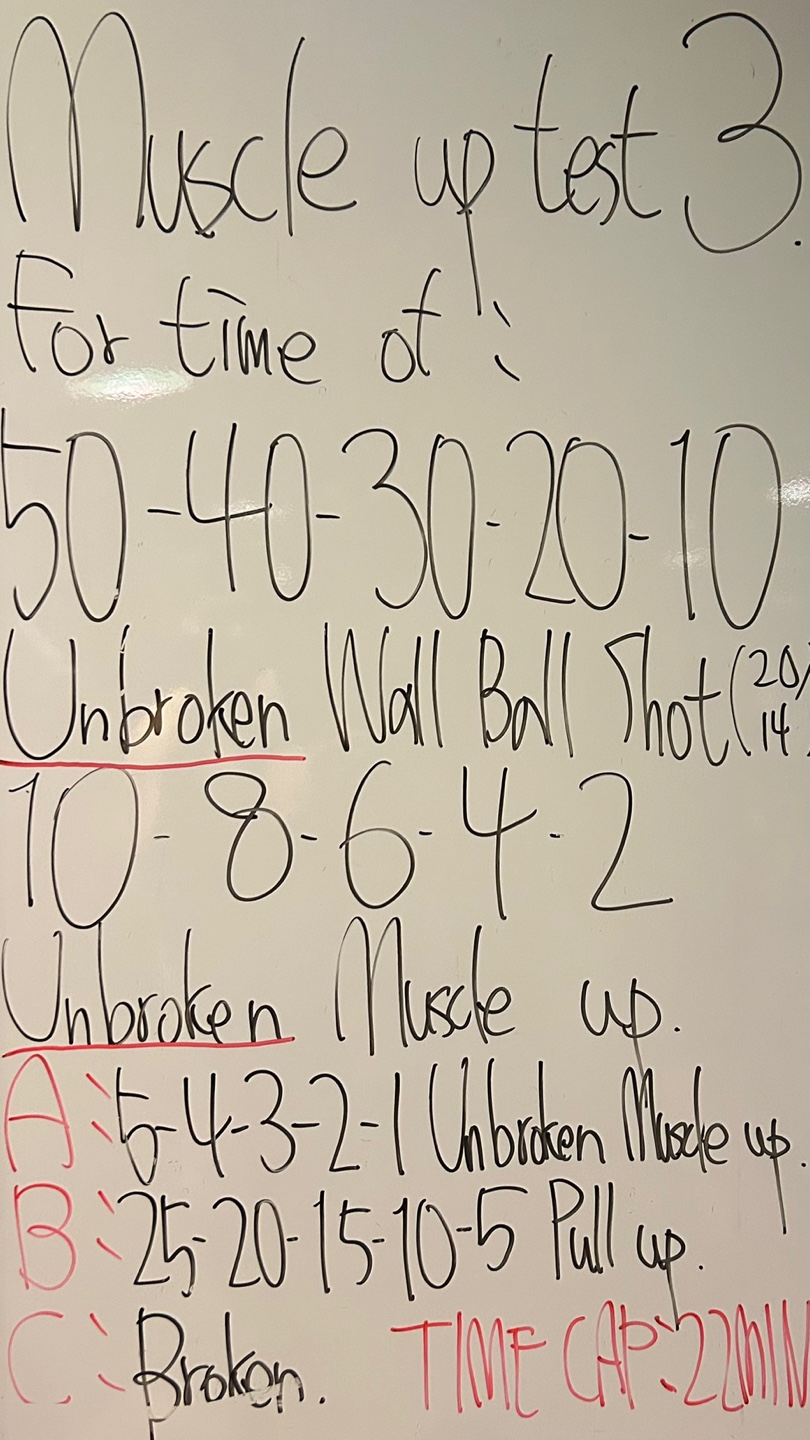 Muscle up test 3.
For time of:
50-40-30-20-10
Unbroken Wall Ball Shot (20/
14)
10-8-6-4-2
Unbroken Muscle up.
A: 5-4-3-2-1 Unbroken Muscle up.
B: 25-20-15-10-5 Pull up.
C: Broken. TIME CAP: 22MIN